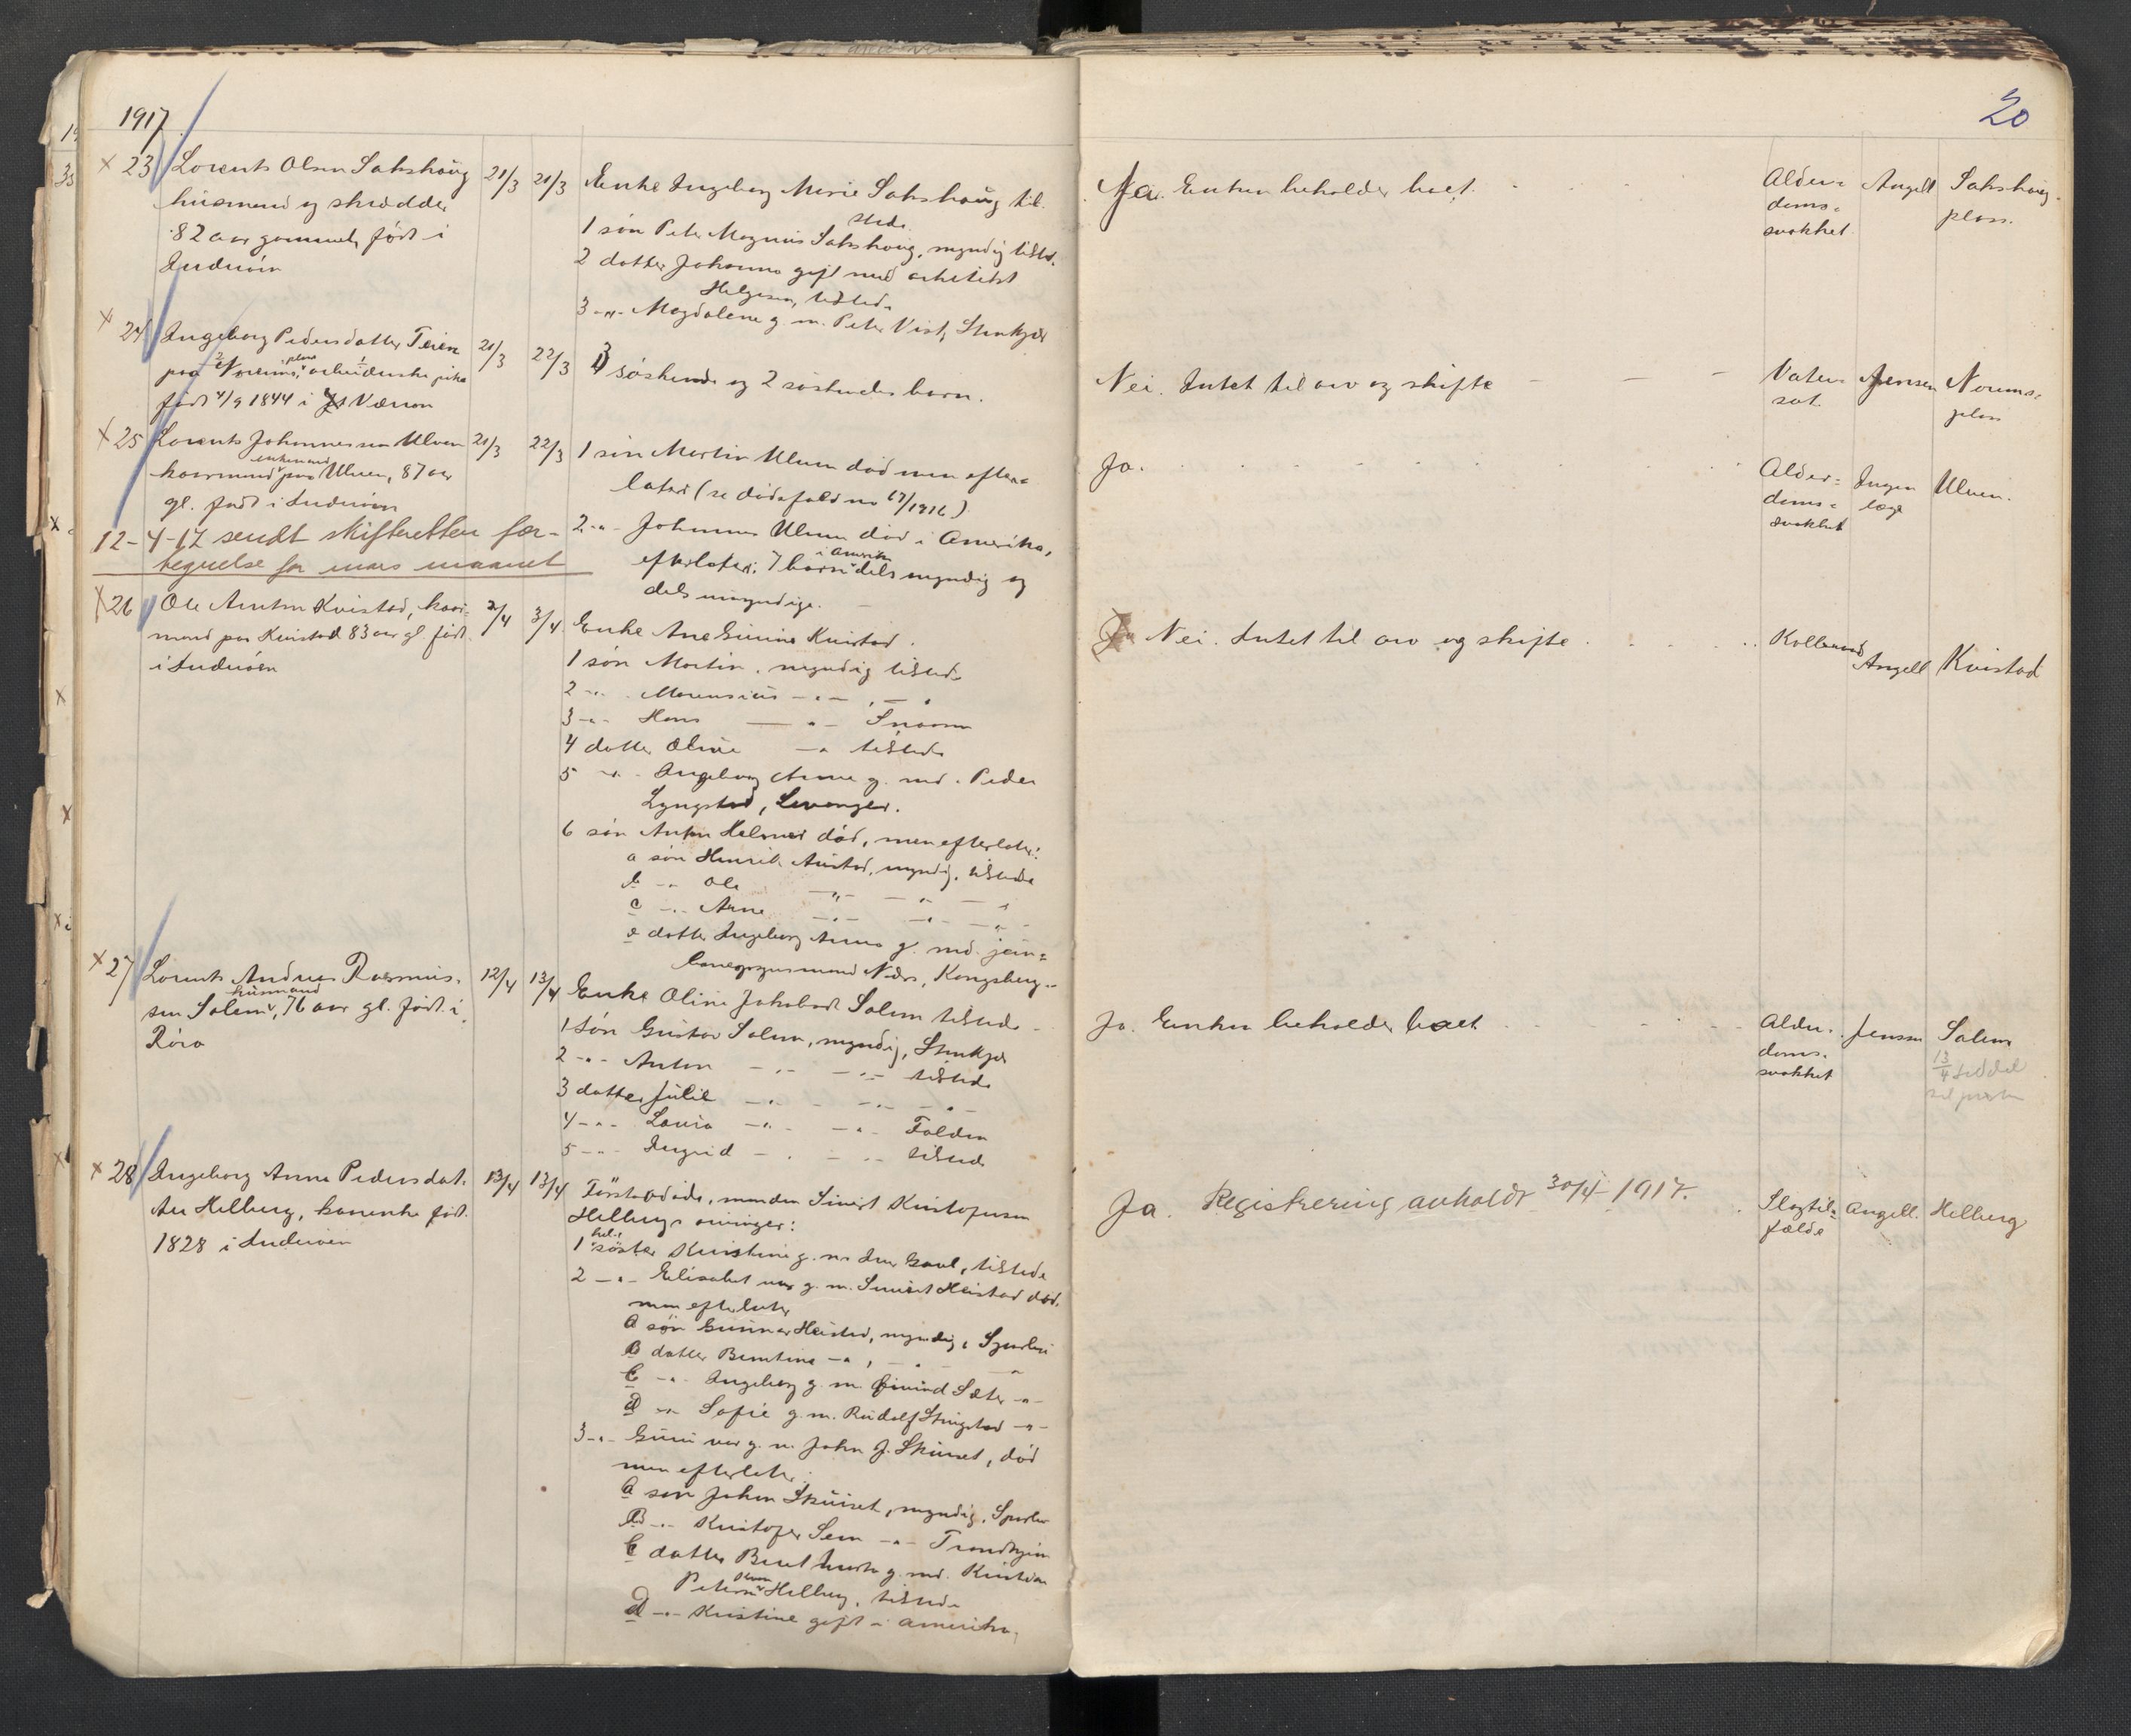 1917
20
× 23 Lorents Olsen Sakshaug
husmand og skrædder
82 aar gammel, født i
Inderøen
21/3 21/3
Enke Ingeborg Marie Sakshaug til-
stede.
1 søn Peter Magnus Sakshaug, myndig tilsted.
2 datter Johanna gift med arkitekt
Helgesen, tilstede
3 -"- Magdalene g. m. Peter Vist, Stenkjær
Ja. Enken beholder boet.
Alder-
doms-
svakhet.
Angell
Sakshaug-
plass.
× 24 Ingeborg Pedersdatter Teien
paa Norums plass, arbeiderske pike
født 4/9 1844 i Værran
21/3 22/3
3 søskende og 2 søskendes barn.
Nei. Intet til arv og skifte
Vater-
sot.
Jensen
Norums-
plass
× 25 Lorents Johannessen Ulven
enkemand
kaarmand paa Ulven, 87 aar
gl. født i Inderøen
21/3 22/3
1 søn Martin Ulven død men efter-
later (se dødsfald no 67/1916)
2 -"- Johannes Ulven død i Amerika,
efterlater: 7 barn i Amerika dels myndig og
dels umyndige.
Ja.
Alder-
doms-
svakhet
Ingen
læge
Ulven.
12-4-17 sendt skifteretten for-
tegnelse for mars maaned
× 26 Ole Anton Kvistad, kaar-
mand paa Kvistad 83 aar gl. født
i Inderøen
2/4 3/4
Enke Ane Kvistad.
1 søn Martin, myndig tilstede
2 -"- Morensius -"- , -"-
3 -"- Hans -"- Snaasen
4 datter Oline -"- tilstede
5 -"- Ingeborg Anna g. med. Peder
Lyngstad, Levanger.
6 søn Anton Helmer død, men efterlater:
a søn Henrik Austad, myndig, tilstede
b -"- Ole -"- -"- -"-
c -"- Arne -"- -"- -"-
e datter Ingeborg Anna g. med. jern-
banegynsmand Næss, Kongsberg.
Nei. Intet til arv og skifte.
Koldbrand
Angell
Kvistad
× 27 Lorents Andreas Rasmus-
husmand
sen Salem, 76 aar gl. født i
Røra
12/4 13/4
Enke Oline Jakobsd. Salem tilstede
1 søn Gustav Salem, myndig, Stenkjær
2 -"- Anton -"- -"- tilstede
3 datter Julie -"- -"- -"-
4 -"- Laura -"- -"- Folden
5 -"- Ingrid -"- -"- tilstede
Ja. Enken beholder boet
Alder-
doms-
svakhet
Jenssen
Salem
13/4 seddel
til presten
× 28 Ingeborg Anna Pedersdat-
ter Helberg, kaarenke født
1828 i Inderøen
13/4 13/4
Førstavdøde, manden Sivert Kristofersen
Helbergs arvinger:
hel-
1 søster Kristine g. m. Iver Gaul, tilstede
2 -"- Elisabet var g. m. Sivert Heistad død,
men efterlater
A søn Gunnar Heistad, myndig, Sparbu
B datter Berntine -"-, -"- -"-
C -"- Ingeborg g. m. Eivind Sæter -"-
D -"- Sofie g. m. Rudolf Stingstad -"-
3 -"- Guru var g. m. John J. Skuiset, død
men efterlater:
A søn Johan Skuiset, myndig, Sparbu
B -"- Kristofer Sem -"- Trondhjem
C datter Beret Marta g. med. Kristian
Petersen Helberg, tilstede
D -"- Kristine gift i Amerika.
Ja. Registrering avholdt 30/4-1917.
Slagtil-
fælde
Angell.
Helberg